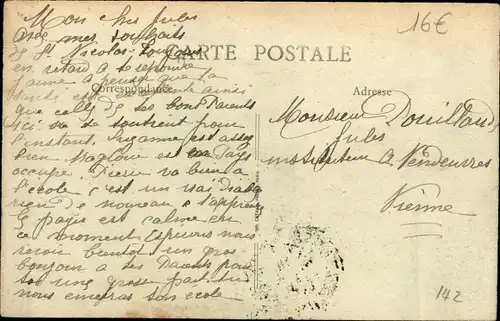 Mon cher Jules
Avec mes souhaits
de St Nicolas. Toujours
en retard a te repondre
J'aime a penser que ta
santé est excellente ainsi
que celle de tes bons Parents
ici va de soutient pour
l'instant. Suzanne est assez
bien Maglone est en Pays
occupé. Pierre va bien a
l'ecole c'est un vrai
rien de nouveau a t'apprendre
le pays est calme en
ce moment. Esperons nous
revoir bientot un gros
bonjour a tes Parents pour
toi une grosse part
nous son ecole
CARTE POSTALE
Correspondance
Adresse
Monsieur Douillard
Jules
instituteur a Vendeuvres
Vienne
16€
142